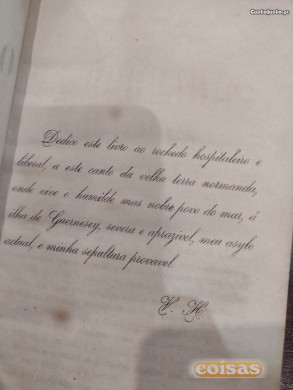 CustoJusto.pt
Dedico este livro ao rochedo hospitaleiro e
liberal, a este canto da velha terra normanda,
onde vive o humilde mas nobre povo do mar, á
ilha de Guernesey, severa e aprazivel, meu asylo
actual, e minha sepultura provavel.
V. H.
coisas